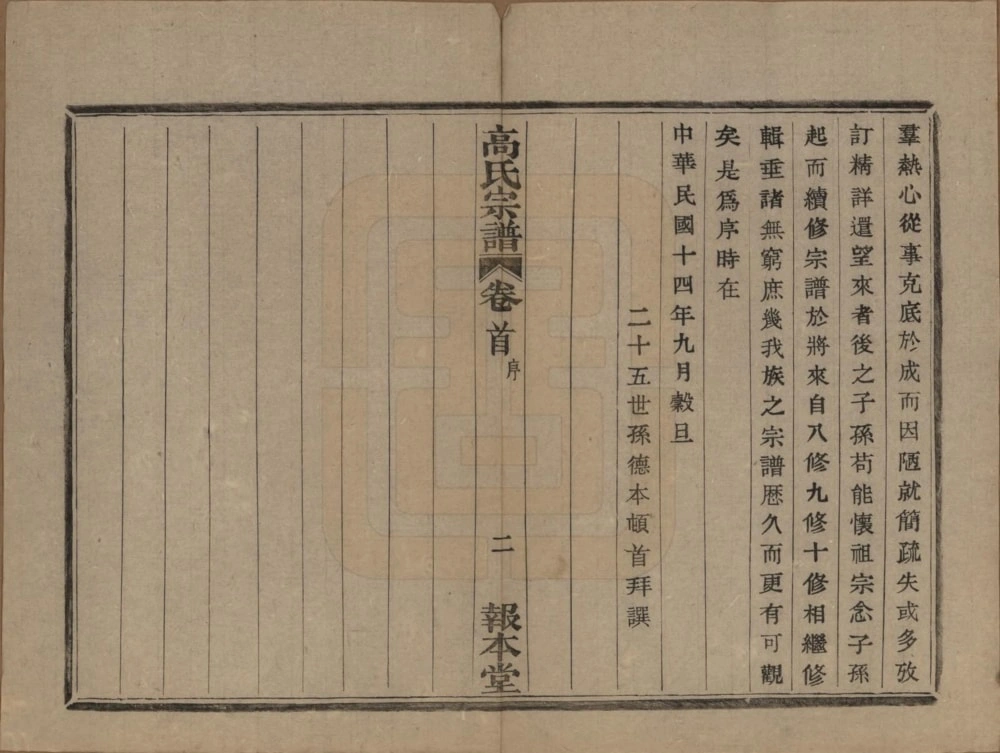 羣熱心從事克底於成而因陋就簡疏失或多攷
訂精詳還望來者後之子孫苟能懷祖宗念子孫
起而續修宗譜於將來自八修九修十修相繼修
輯垂諸無窮庶幾我族之宗譜歷久而更有可觀
矣是爲序時在
中華民國十四年九月穀旦
二十五世孫德本頓首拜譔
高氏宗譜 卷首 序 二 報本堂